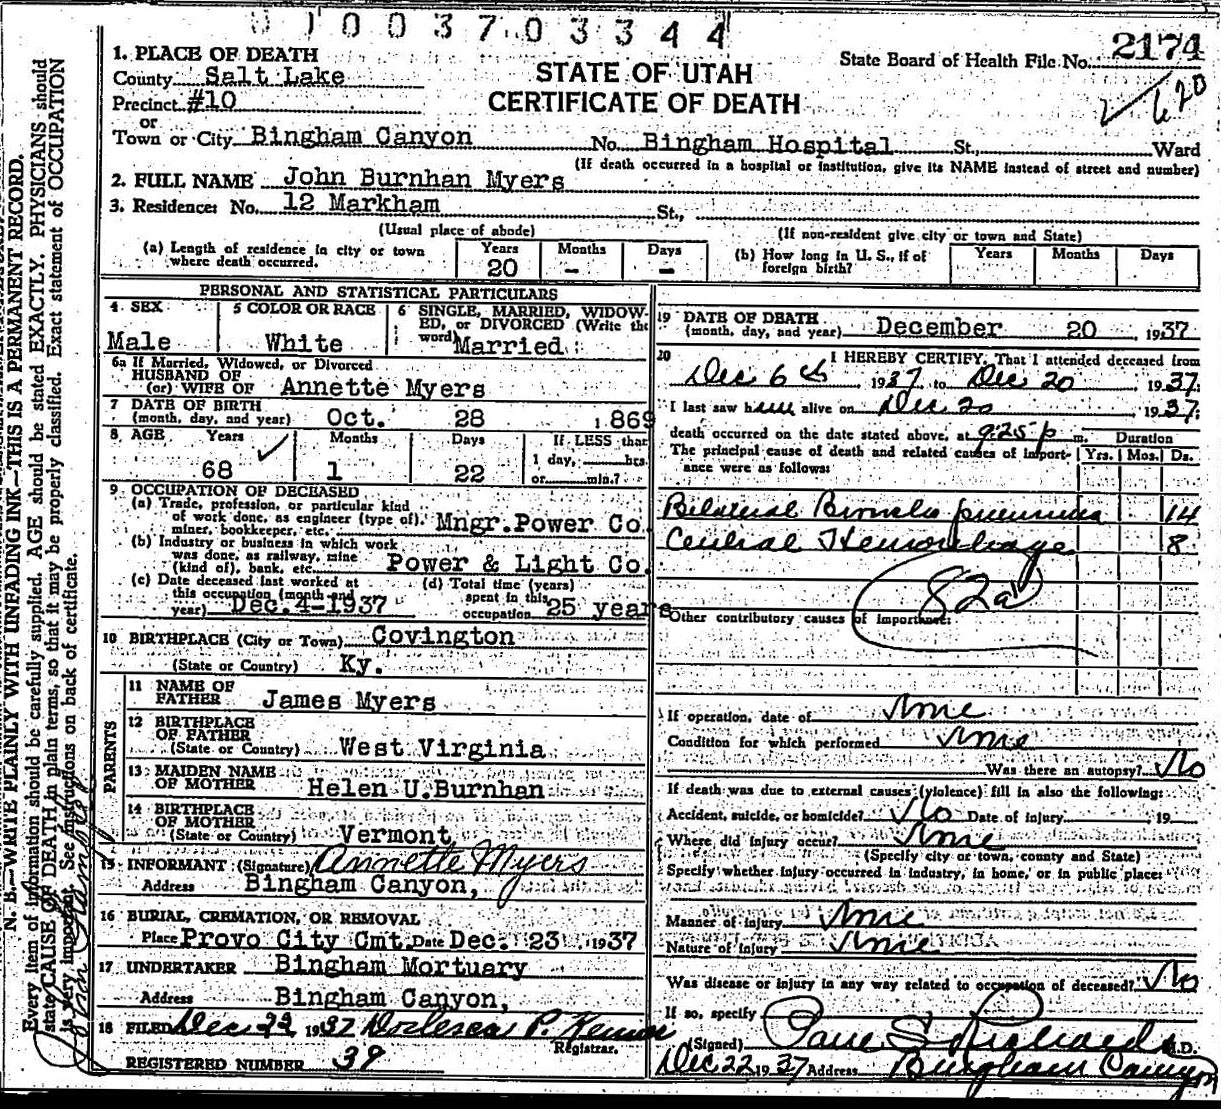 01003703344
1. PLACE OF DEATH
County Salt Lake
Precinct #10
or
Town or City Bingham Canyon No. Bingham Hospital St., Ward
(If death occurred in a hospital or institution, give its NAME instead of street and number)
STATE OF UTAH
CERTIFICATE OF DEATH
State Board of Health File No. 2174
620
2. FULL NAME John Burnhan Myers
3. Residence: No. 12 Markham St.,
(Usual place of abode) (If non-resident give city or town and State)
(a) Length of residence in city or town where death occurred. Years 20 Months - Days -
(b) How long in U. S., if of foreign birth? Years Months Days
PERSONAL AND STATISTICAL PARTICULARS
4 SEX Male
5 COLOR OR RACE White
6 SINGLE, MARRIED, WIDOWED, or DIVORCED (Write the word) Married
6a If Married, Widowed, or Divorced
HUSBAND OF
(or) WIFE OF Annette Myers
7 DATE OF BIRTH
(month, day, and year) Oct. 28 1869
8 AGE Years 68 Months 1 Days 22 If LESS than 1 day, hrs. or min.?
9 OCCUPATION OF DECEASED
(a) Trade, profession, or particular kind of work done, as engineer (type of), miner, bookkeeper, etc. Mngr.Power Co.
(b) Industry or business in which work was done, as railway, mine (kind of), bank, etc. Power & Light Co.
(c) Date deceased last worked at this occupation (month and year) Dec.4-1937
(d) Total time (years) spent in this occupation 25 years
10 BIRTHPLACE (City or Town) Covington
(State or Country) Ky.
PARENTS
11 NAME OF FATHER James Myers
12 BIRTHPLACE OF FATHER
(State or Country) West Virginia
13 MAIDEN NAME OF MOTHER Helen U.Burnhan
14 BIRTHPLACE OF MOTHER
(State or Country) Vermont
15 INFORMANT (Signature) Annette Myers
Address Bingham Canyon,
16 BURIAL, CREMATION, OR REMOVAL
Place Provo City Cmt. Date Dec. 23 1937
17 UNDERTAKER Bingham Mortuary
Address Bingham Canyon,
18 FILED Dec 22 1937
Registrar.
REGISTERED NUMBER 39
19 DATE OF DEATH
(month, day, and year) December 20 1937
20 I HEREBY CERTIFY, That I attended deceased from
Dec 6th, 1937 to Dec 20, 1937;
I last saw him alive on Dec 20, 1937;
death occurred on the date stated above, at 9:25 p m.
The principal cause of death and related causes of importance were as follows:
Duration
Yrs. Mos. Ds.
Bilateral Broncho pneumonia 14
Cerebral Hemorrhage 8
82a
Other contributory causes of importance:
If operation, date of None
Condition for which performed None
Was there an autopsy? No
If death was due to external causes (violence) fill in also the following:
Accident, suicide, or homicide? No Date of injury 19
Where did injury occur? None
(Specify city or town, county and State)
Specify whether injury occurred in industry, in home, or in public place:
Manner of injury None
Nature of injury None
Was disease or injury in any way related to occupation of deceased? No
If so, specify
(Signed) Paul S. Richards M.D.
Dec 22 1937 Address Bingham Canyon
N. B.—WRITE PLAINLY WITH UNFADING INK—THIS IS A PERMANENT RECORD.
Every item of information should be carefully supplied. AGE should be stated EXACTLY. PHYSICIANS should
state CAUSE OF DEATH in plain terms, so that it may be properly classified. Exact statement of OCCUPATION
is very important. See instructions on back of certificate.